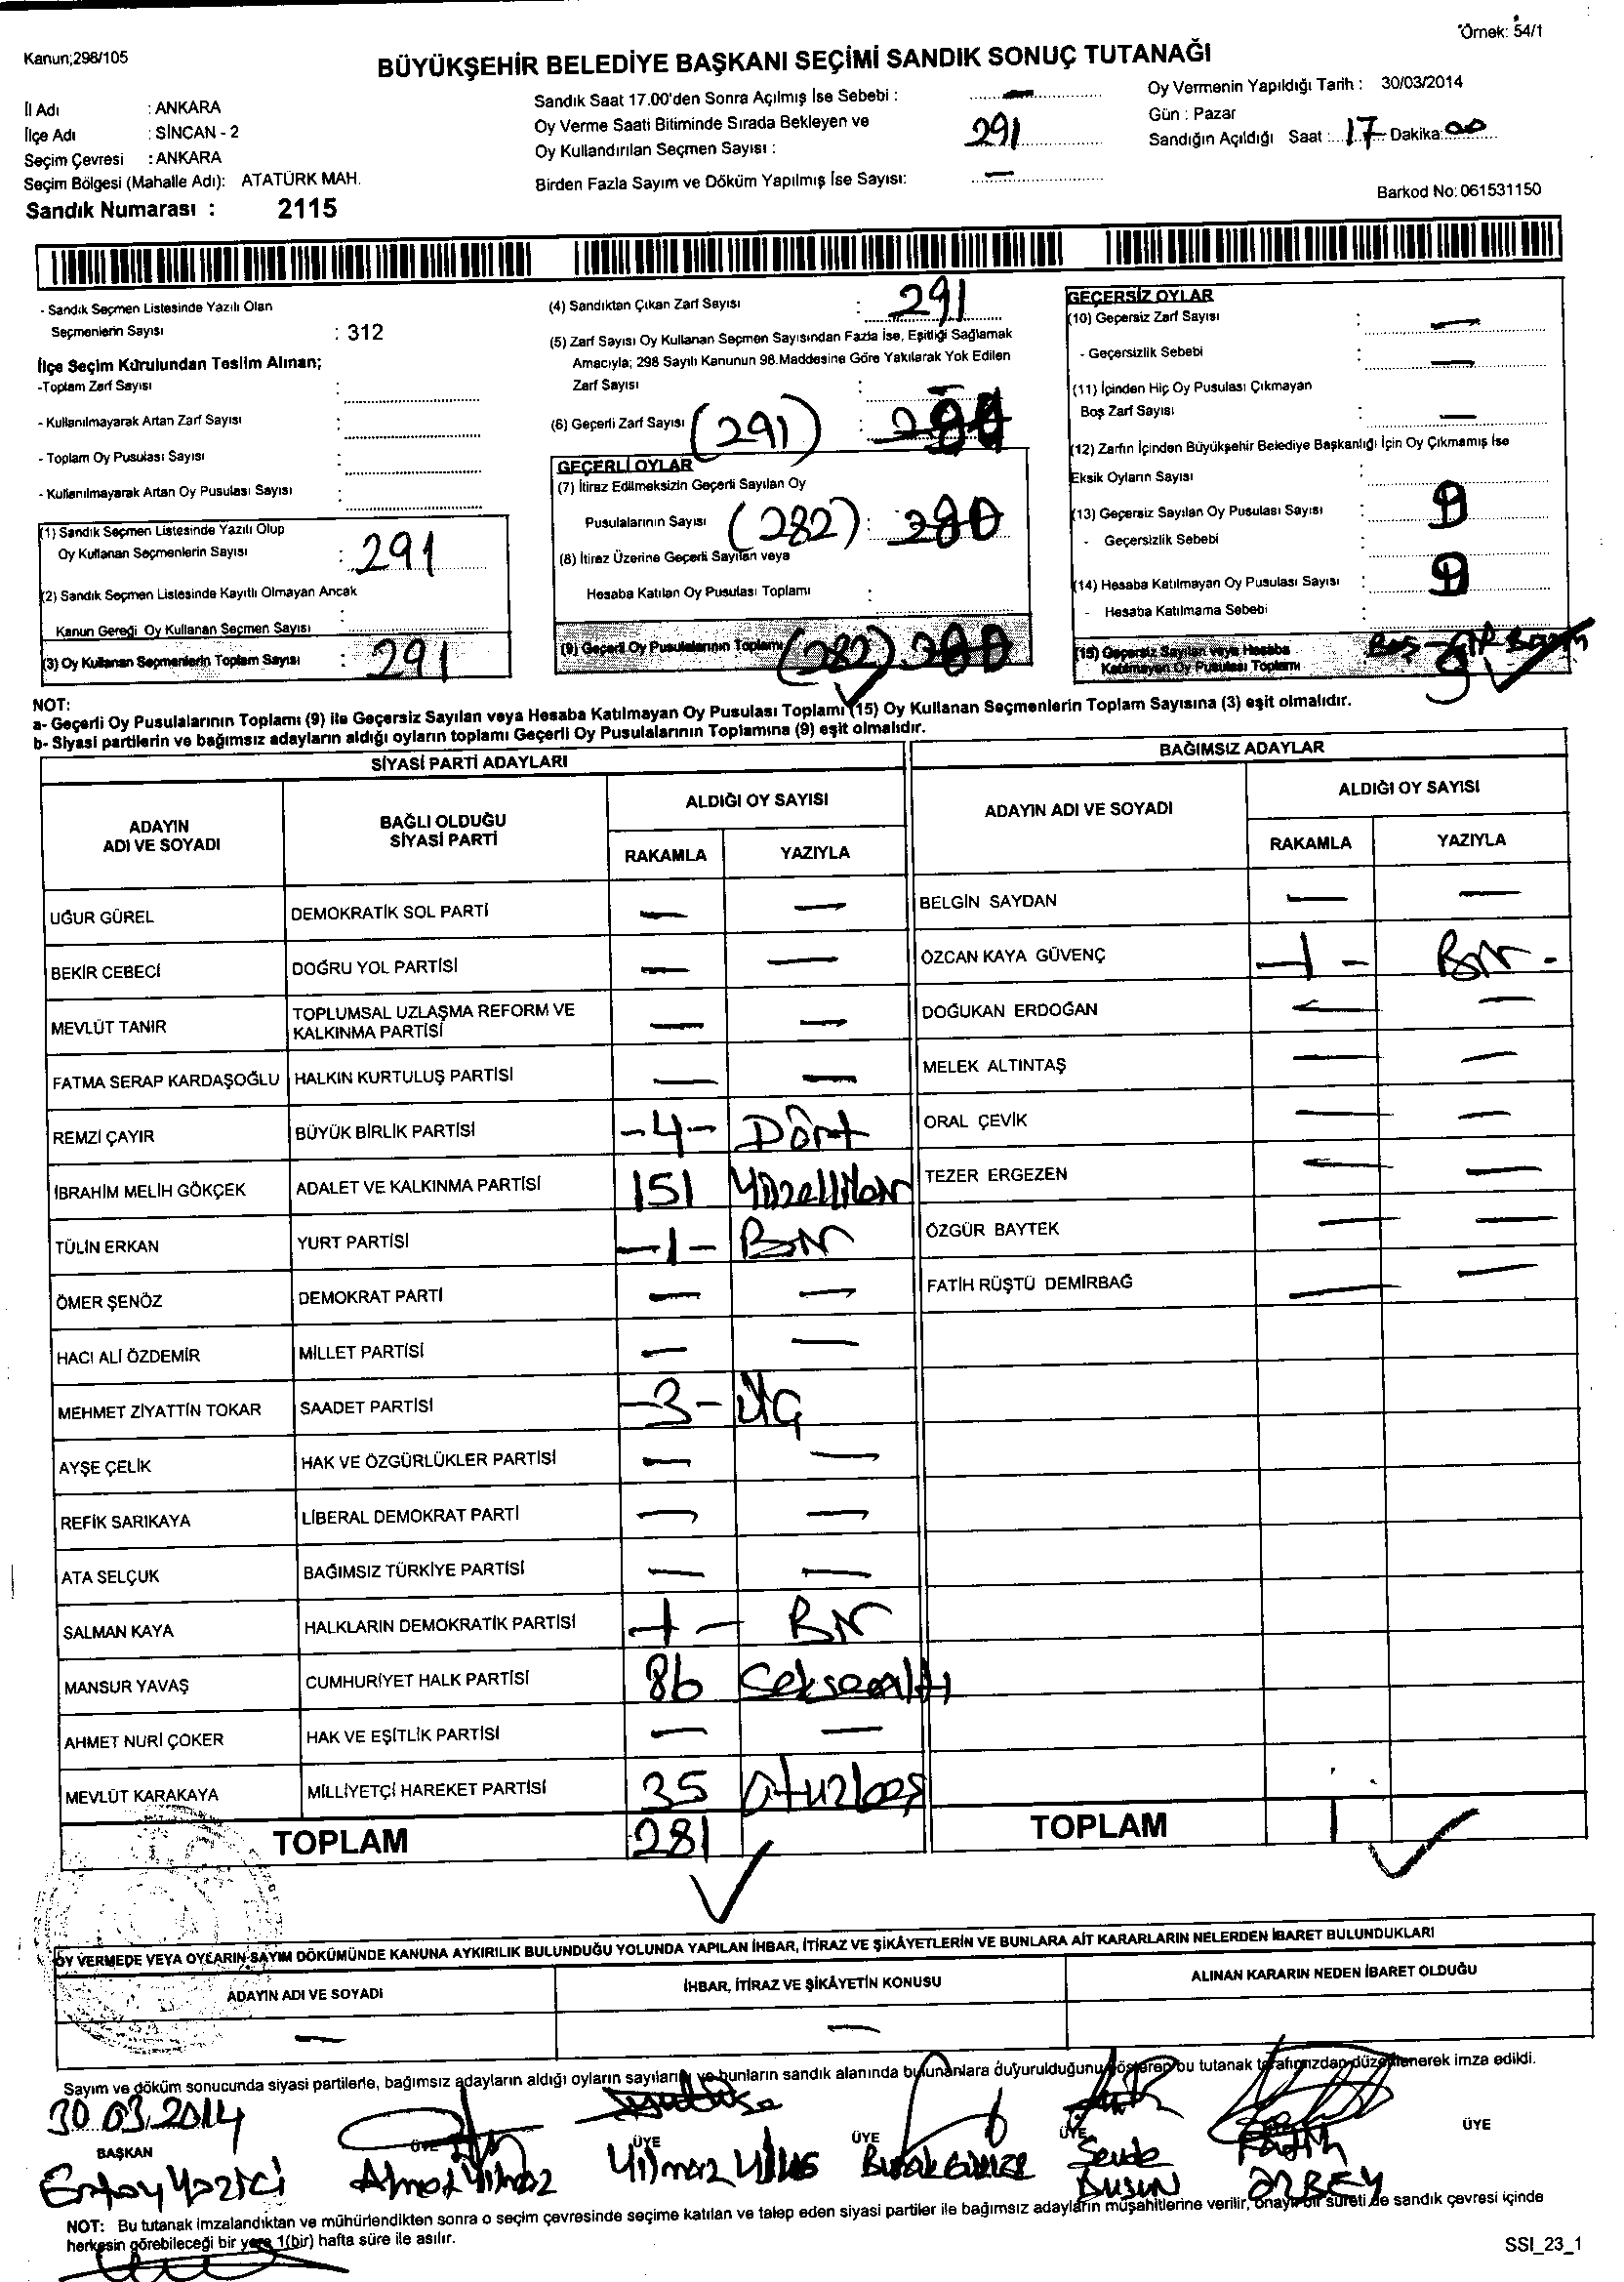 Örnek: 54/1
Kanun;298/105
BÜYÜKŞEHİR BELEDİYE BAŞKANI SEÇİMİ SANDIK SONUÇ TUTANAĞI
İl Adı : ANKARA
İlçe Adı : SİNCAN - 2
Seçim Çevresi : ANKARA
Seçim Bölgesi (Mahalle Adı): ATATÜRK MAH.
Sandık Numarası : 2115
Sandık Saat 17.00'den Sonra Açılmış İse Sebebi : —
Oy Verme Saati Bitiminde Sırada Bekleyen ve
Oy Kullandırılan Seçmen Sayısı : 291
Birden Fazla Sayım ve Döküm Yapılmış İse Sayısı: —
Oy Vermenin Yapıldığı Tarih : 30/03/2014
Gün : Pazar
Sandığın Açıldığı Saat : 17 Dakika: 00
Barkod No: 061531150
- Sandık Seçmen Listesinde Yazılı Olan
Seçmenlerin Sayısı : 312
İlçe Seçim Kurulundan Teslim Alınan;
-Toplam Zarf Sayısı :
- Kullanılmayarak Artan Zarf Sayısı :
- Toplam Oy Pusulası Sayısı :
- Kullanılmayarak Artan Oy Pusulası Sayısı :
(1) Sandık Seçmen Listesinde Yazılı Olup
Oy Kullanan Seçmenlerin Sayısı : 291
(2) Sandık Seçmen Listesinde Kayıtlı Olmayan Ancak
Kanun Gereği Oy Kullanan Seçmen Sayısı :
(3) Oy Kullanan Seçmenlerin Toplam Sayısı : 291
(4) Sandıktan Çıkan Zarf Sayısı : 291
(5) Zarf Sayısı Oy Kullanan Seçmen Sayısından Fazla İse, Eşitliği Sağlamak
Amacıyla; 298 Sayılı Kanunun 98.Maddesine Göre Yakılarak Yok Edilen
Zarf Sayısı : —
(6) Geçerli Zarf Sayısı (291) :
GEÇERLİ OYLAR
(7) İtiraz Edilmeksizin Geçerli Sayılan Oy
Pusulalarının Sayısı (282) : 280
(8) İtiraz Üzerine Geçerli Sayılan veya
Hesaba Katılan Oy Pusulası Toplamı :
(9) Geçerli Oy Pusulalarının Toplamı (282) 280
GEÇERSİZ OYLAR
(10) Geçersiz Zarf Sayısı : —
- Geçersizlik Sebebi : —
(11) İçinden Hiç Oy Pusulası Çıkmayan
Boş Zarf Sayısı : —
(12) Zarfın İçinden Büyükşehir Belediye Başkanlığı İçin Oy Çıkmamış İse
Eksik Oyların Sayısı :
(13) Geçersiz Sayılan Oy Pusulası Sayısı : 9
- Geçersizlik Sebebi :
(14) Hesaba Katılmayan Oy Pusulası Sayısı : 9
- Hesaba Katılmama Sebebi :
(15) Geçersiz Sayılan veya Hesaba
Katılmayan Oy Pusulası Toplamı 9
NOT:
a- Geçerli Oy Pusulalarının Toplamı (9) ile Geçersiz Sayılan veya Hesaba Katılmayan Oy Pusulası Toplamı (15) Oy Kullanan Seçmenlerin Toplam Sayısına (3) eşit olmalıdır.
b- Siyasi partilerin ve bağımsız adayların aldığı oyların toplamı Geçerli Oy Pusulalarının Toplamına (9) eşit olmalıdır.
SİYASİ PARTİ ADAYLARI
ADAYIN ADI VE SOYADI
BAĞLI OLDUĞU SİYASİ PARTİ
ALDIĞI OY SAYISI
RAKAMLA YAZIYLA
UĞUR GÜREL DEMOKRATİK SOL PARTİ — —
BEKİR CEBECİ DOĞRU YOL PARTİSİ — —
MEVLÜT TANIR TOPLUMSAL UZLAŞMA REFORM VE KALKINMA PARTİSİ — —
FATMA SERAP KARDAŞOĞLU HALKIN KURTULUŞ PARTİSİ — —
REMZİ ÇAYIR BÜYÜK BİRLİK PARTİSİ -4- Dört
İBRAHİM MELİH GÖKÇEK ADALET VE KALKINMA PARTİSİ 151 Yüzellibir
TÜLİN ERKAN YURT PARTİSİ -1- Bir
ÖMER ŞENÖZ DEMOKRAT PARTİ — —
HACI ALİ ÖZDEMİR MİLLET PARTİSİ — —
MEHMET ZİYATTİN TOKAR SAADET PARTİSİ -3- Üç
AYŞE ÇELİK HAK VE ÖZGÜRLÜKLER PARTİSİ — —
REFİK SARIKAYA LİBERAL DEMOKRAT PARTİ — —
ATA SELÇUK BAĞIMSIZ TÜRKİYE PARTİSİ — —
SALMAN KAYA HALKLARIN DEMOKRATİK PARTİSİ -1- Bir
MANSUR YAVAŞ CUMHURİYET HALK PARTİSİ 86 Seksenaltı
AHMET NURİ ÇOKER HAK VE EŞİTLİK PARTİSİ — —
MEVLÜT KARAKAYA MİLLİYETÇİ HAREKET PARTİSİ 35 Otuzbeş
TOPLAM 281
BAĞIMSIZ ADAYLAR
ADAYIN ADI VE SOYADI
ALDIĞI OY SAYISI
RAKAMLA YAZIYLA
BELGİN SAYDAN — —
ÖZCAN KAYA GÜVENÇ -1- Bir -
DOĞUKAN ERDOĞAN — —
MELEK ALTINTAŞ — —
ORAL ÇEVİK — —
TEZER ERGEZEN — —
ÖZGÜR BAYTEK — —
FATİH RÜŞTÜ DEMİRBAĞ — —
TOPLAM 1
OY VERMEDE VEYA OYLARIN SAYIM DÖKÜMÜNDE KANUNA AYKIRILIK BULUNDUĞU YOLUNDA YAPILAN İHBAR, İTİRAZ VE ŞİKÂYETLERİN VE BUNLARA AİT KARARLARIN NELERDEN İBARET BULUNDUKLARI
ADAYIN ADI VE SOYADI İHBAR, İTİRAZ VE ŞİKÂYETİN KONUSU ALINAN KARARIN NEDEN İBARET OLDUĞU
— —
Sayım ve döküm sonucunda siyasi partilerle, bağımsız adayların aldığı oyların sayılarını ve bunların sandık alanında bulunanlara duyurulduğunu gösteren bu tutanak tarafımızdan düzenlenerek imza edildi.
30.03.2014
BAŞKAN ÜYE ÜYE ÜYE ÜYE ÜYE
Ertay Yazici Ahmet Yılmaz Yılmaz Fatih
NOT: Bu tutanak imzalandıktan ve mühürlendikten sonra o seçim çevresinde seçime katılan ve talep eden siyasi partiler ile bağımsız adayların müşahitlerine verilir, onaylı bir sureti de sandık çevresi içinde
herkesin görebileceği bir yere 1(bir) hafta süre ile asılır.
SSI_23_1